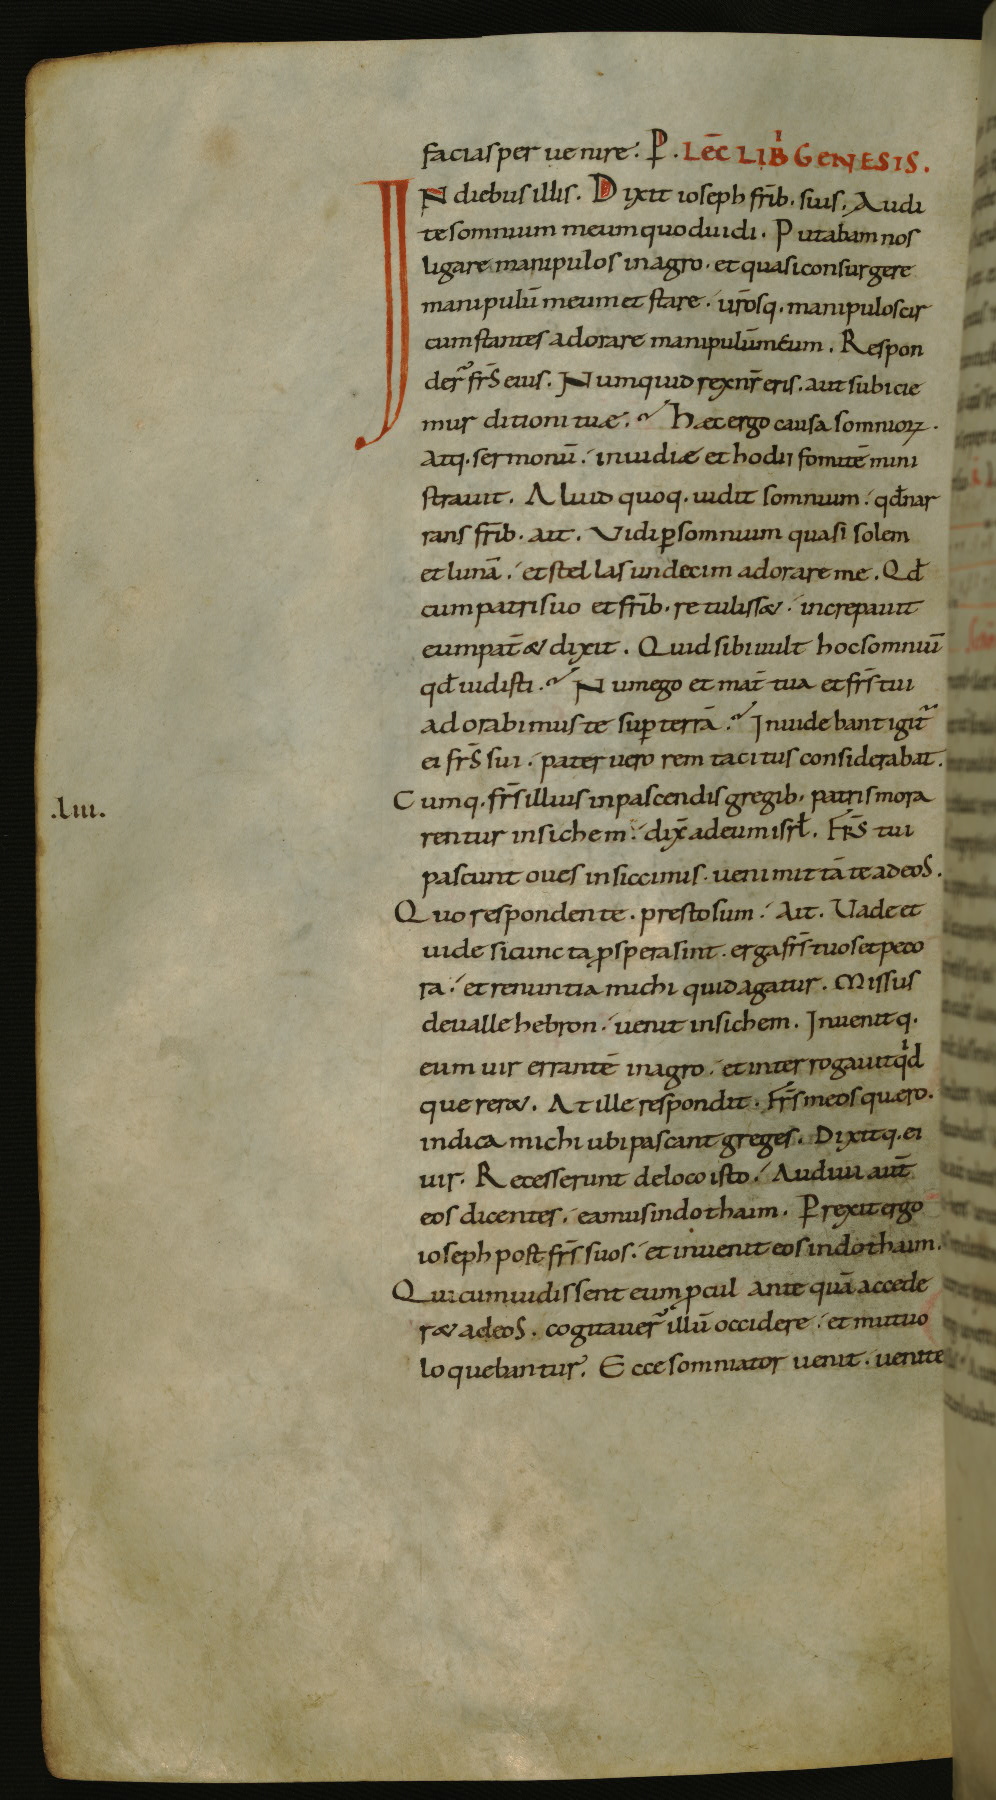 facias per uenire. P. LEC̄ LIB̄ GENESIS.
IN diebus illis. Dixit ioseph fr̄ib. suis. Audi
te somnium meum quod uidi. Putabam nos
ligare manipulos in agro. et quasi consurgere
manipulū meum et stare. ur̄osq. manipulos cir
cumstantes adorare manipulū meum. Respon
der̄ fr̄s eius. Numquid rex nr̄ eris. aut subicie
mur ditioni tuæ. Hæc ergo causa somnioꝝ.
atq. sermonū. inuidiæ et hodii fomitē mini
strauit. Aliud quoq. uidit somnium. qđ nar
rans fr̄ib. ait. Vidi ꝑ somnium quasi solem
et lunā. et stellas undecim adorare me. Qđ
cum patri suo et fr̄ib. retuliss&. increpauit
eum pat̄ & dixit. Quid sibi uult hoc somniū
qđ uidisti. Num ego et mat̄ tua et fr̄s tui
adorabimus te suꝑ terrā. Inuidebant igit̄
ei fr̄s sui. pater uero rem tacitus considerabat.
.liii. Cumq. fr̄s illius in pascendis gregib. patris mora
rentur in sichem. dix̄ ad eum isrł. Fr̄s tui
pascunt oues in siccimis. ueni mittā te ad eos.
Quo respondente. presto sum. Ait. Uade et
uide si cuncta ꝓspera sint. erga fr̄s tuos et peco
ra. et renuntia michi quid agatur. Missus
de ualle hebron. uenit in sichem. Inuenitq.
eum uir errantē in agro. et interrogauit qͥd
querer&. At ille respondit. Fr̄s meos quæro.
indica michi ubi pascant greges. Dixitq. ei
uir. Recesserunt de loco isto. Audiui aut̄
eos dicentes. eamus in dothaim. Perrexit ergo
ioseph post fr̄s suos. et inuenit eos in dothaim.
Qui cum uidissent eum ꝓcul ante quā accede
r& ad eos. cogitauer̄ illū occidere. et mutuo
loquebantur. Ecce somniator uenit. uenite